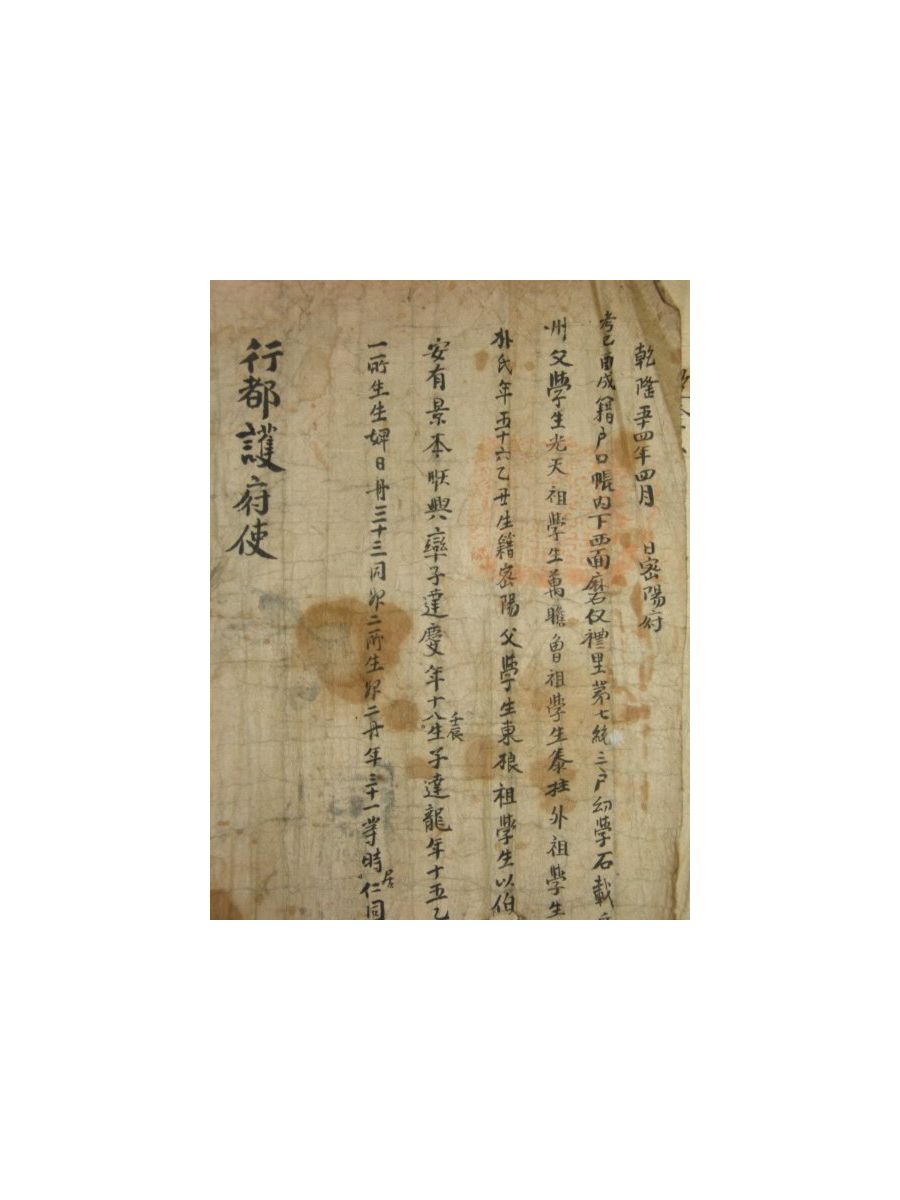 乾隆五十四年四月 日密陽府
考己酉成籍户口帳内下西面磨仅禮里苐七統三户幼學石載
州父學生光天祖學生萬瞻曾祖學生泰柱外祖學生
朴氏年五十六乙丑生籍密陽父學生東根祖學生以伯
安有景本順興率子達慶年十八壬辰生子達龍年十五乙
一所生生婢日丹三十三同婢二所生婢二丹年三十一等時居仁同
行都護府使